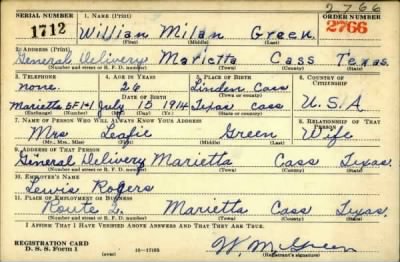 2766
SERIAL NUMBER 1. NAME (Print) ORDER NUMBER
1712 William Milan Green 2766
(First) (Middle) (Last)
2. ADDRESS (Print)
General Delivery Marietta Cass Texas
(Number and street or R. F. D. number) (Town) (County) (State)
3. TELEPHONE 4. AGE IN YEARS 5. PLACE OF BIRTH 6. COUNTRY OF CITIZENSHIP
none. 26 Linden Cass
DATE OF BIRTH (Town or county)
Marietta 5F1-1 July 15 1914 Texas Cass U.S.A.
(Exchange) (Number) (Mo.) (Day) (Yr.) (State or country)
7. NAME OF PERSON WHO WILL ALWAYS KNOW YOUR ADDRESS 8. RELATIONSHIP OF THAT PERSON
Mrs Green Wife
(Mr., Mrs., Miss) (First) (Middle) (Last)
9. ADDRESS OF THAT PERSON
General Delivery Marietta Cass Texas.
(Number and street or R. F. D. number) (Town) (County) (State)
10. EMPLOYER'S NAME
Lewis Rogers
11. PLACE OF EMPLOYMENT OR BUSINESS
Route Marietta Cass Texas.
(Number and street or R. F. D. number) (Town) (County) (State)
I AFFIRM THAT I HAVE VERIFIED ABOVE ANSWERS AND THAT THEY ARE TRUE.
REGISTRATION CARD
D. S. S. Form 1 (over) 16—17105 W. M. Green
(Registrant's signature)